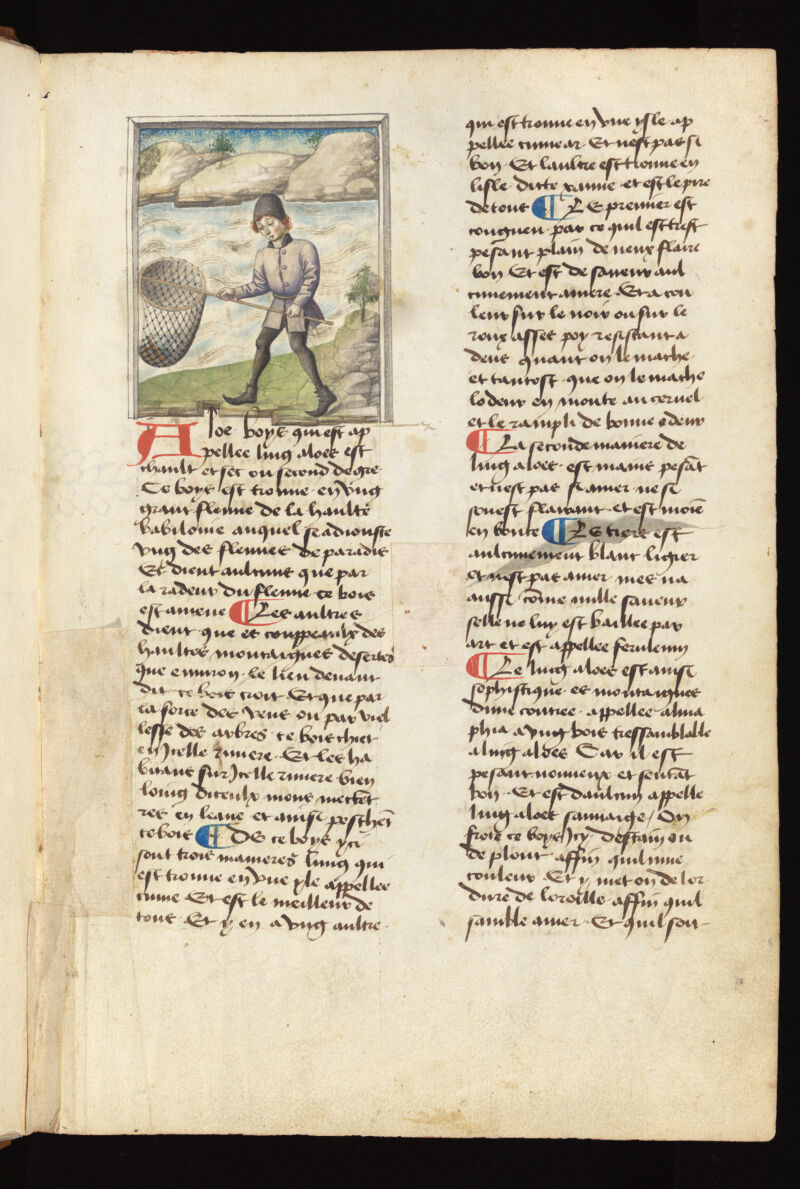 Aloe boys qui est ap
pellee ling aloes est
chault et sec ou second degre
Ce boys est trouve en vng
grant fleuue de la haulte
babiloine auquel se adiouste
vng des fleuues de paradis
Et dient aulcuns que par
la radeur du fleuue ce bois
est amene ¶ Les aultres
dient que es couppeaulx des
haultes montaignes desertes
que enuiron le lieu deuant
dit ce bois croit Et que par
la force des vens ou par viel
lesse des arbres ce bois chiet
en Icelle riuiere Et les ha
bitans sur Icelle riuiere bien
loing diceulx mons mettẽt
res en leaue et ainsi peschẽt
ce bois ¶ De ce boys yci
sont trois manieres lung qui
est trouue en vne ysle appellee
cume Et est le meilleur de
tous Et y en a vng aultre
qui est trouue en vne ysle ap
pellee cumear Et nest pas si
bon Et laultre est trouue en
lisle dicte xanne et est le pire
de tous ¶ Le premier est
congneu par ce quil est tresf
pesant plain de neux flaire
bon Et est de saueur aul
cunement amere Et a cou
leur sur le noir ou sur le
roux asses poy resistant a
dens quant on le mache
et tantost que on le mache
lodeur en monte au cervel
et le rampli de bonne odeur
¶ La seconde maniere de
ling aloes est mains pesãt
et nest pas si amer ne si
souef flairant et est moiẽ
en bonte ¶ Le tiers est
aulcunement blanc ligier
et nest pas amer mes na
aussi cõme nulle saueur
selle ne luy est baillee par
art et est appellee
¶ Le ling aloes est ainsi
sophistique es montaignes
dune contree appellee alma
phia a vng bois tressamblable
a ling aloes Car il est
pesant noueux et sentãt
bon Et est daulcuns appelle
ling aloes sauuaige / On
frote ce boys Icy destain ou
de plont affin quil mue
couleur Et y met on de lor
dure de loreille affin quil
samble amer Et quil soit